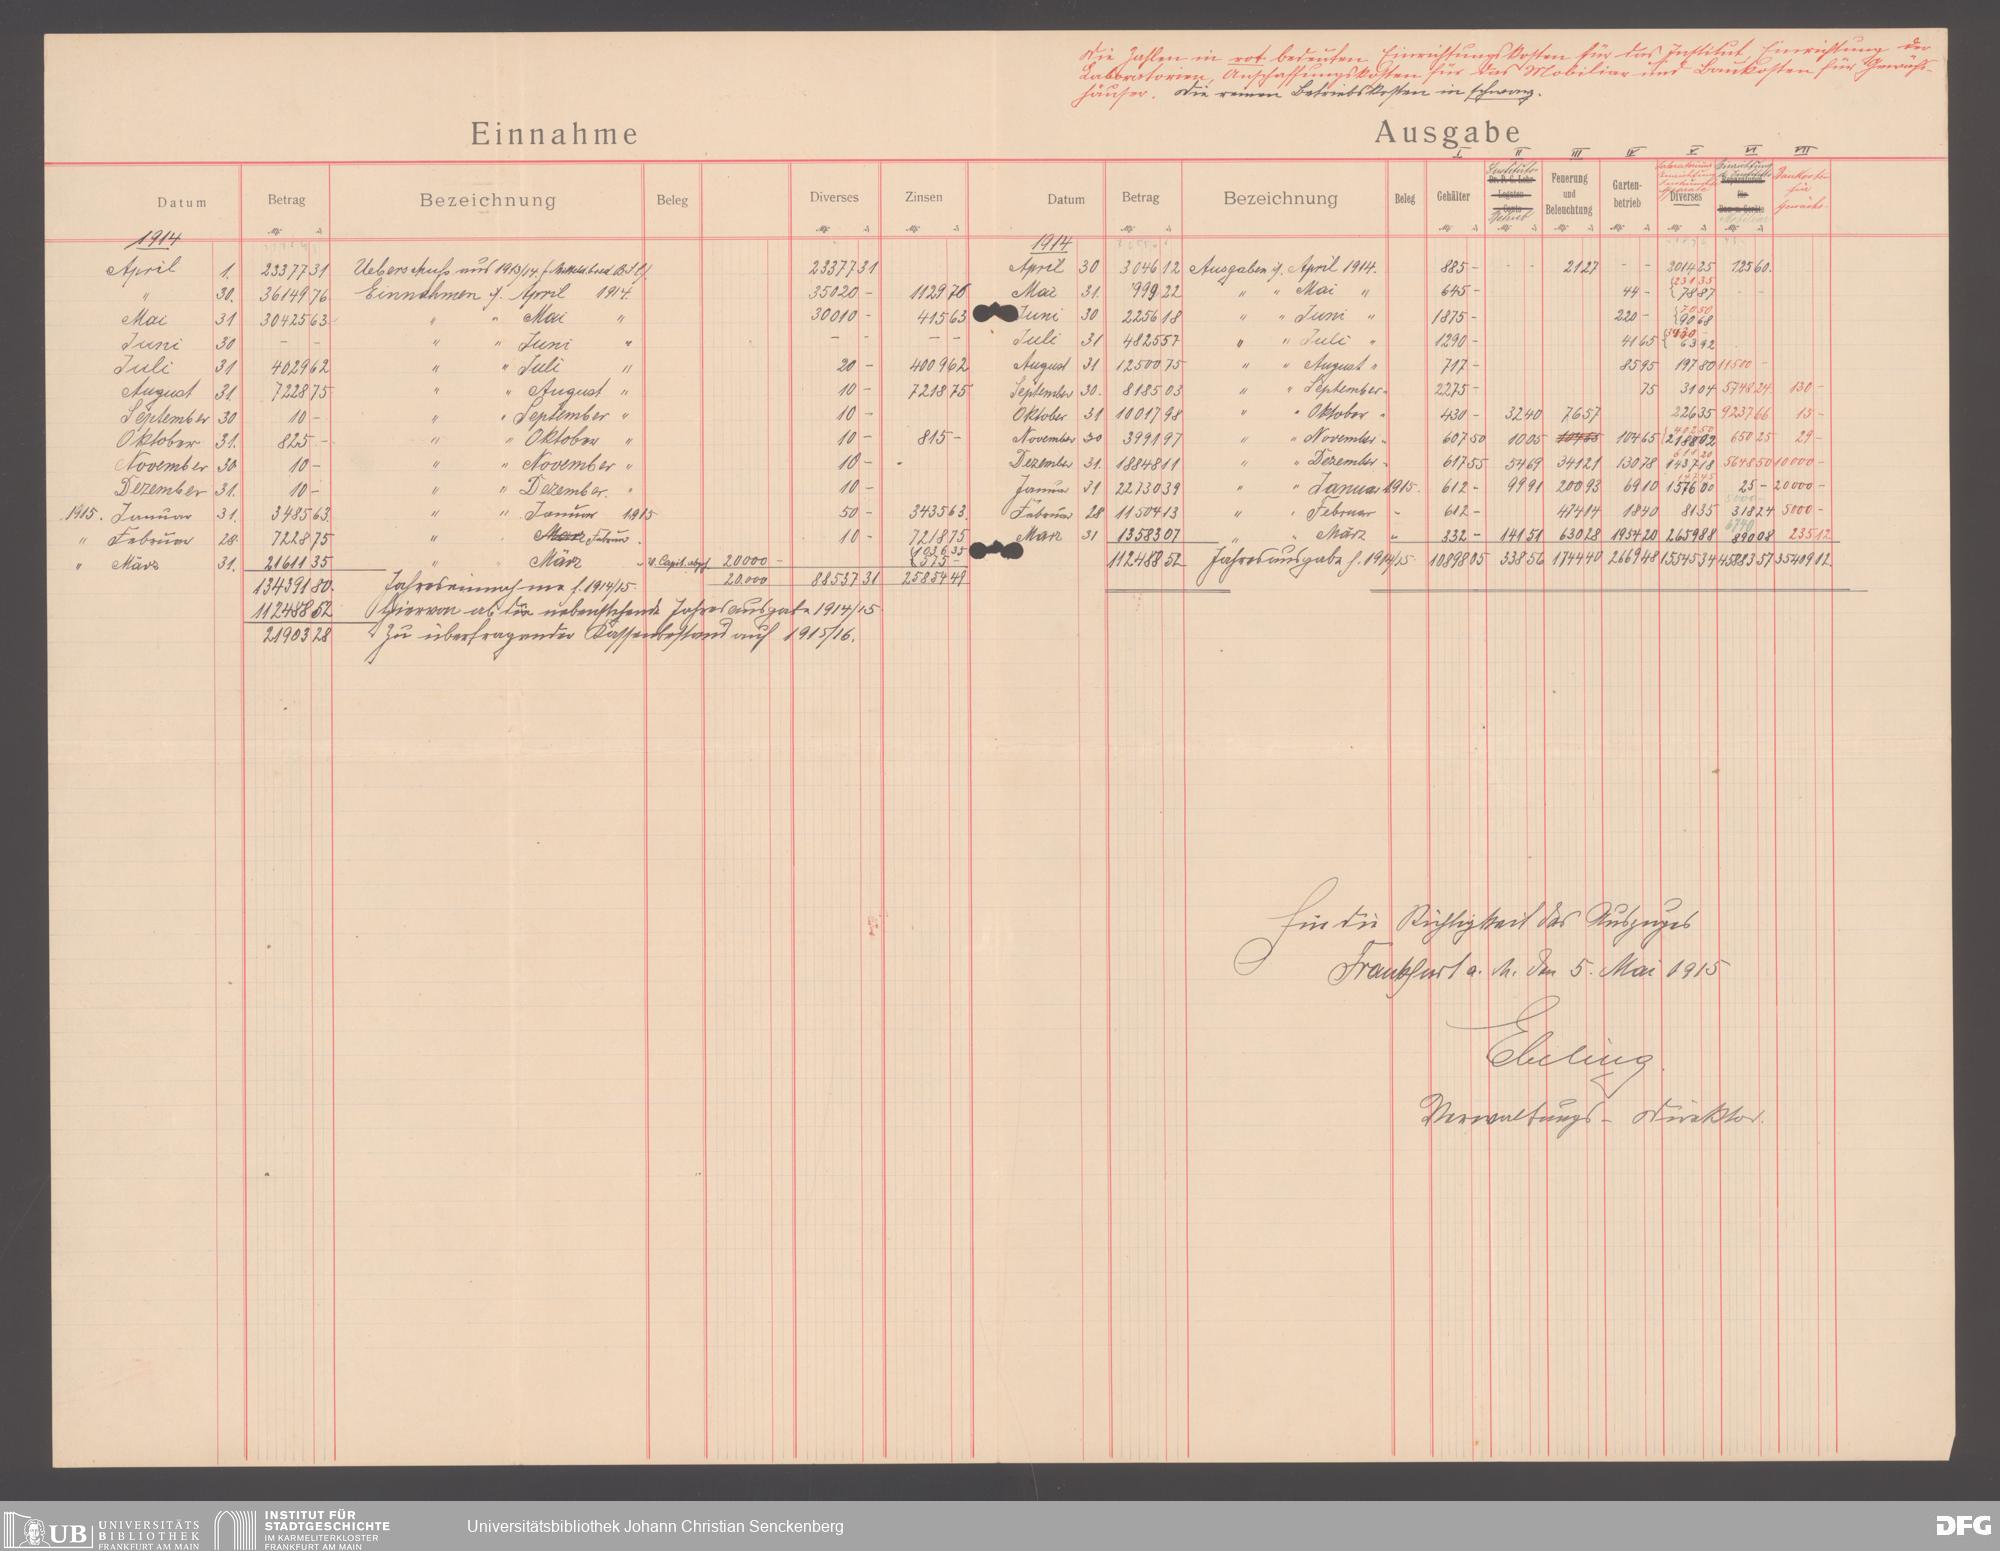 Die Zahlen in rot bedeuten Einrichtungskosten für das Institut, Einrichtung der
Laboratorien, Anschaffungskosten für das Mobiliar und Baukosten für Gewächs-
häuser. Die reinen Betriebskosten in schwarz.
Einnahme
Datum Betrag Bezeichnung Beleg Diverses Zinsen
1914
April 1. 23377 31 Ueberschuss aus 1913/14. 23377 31
" 30. 36149 76 Einnahmen f. April 1914. 35020 - 1129 76
Mai 31 30425 63 " " Mai " 30010 - 415 63
Juni 30 - - " " Juni " - - - -
Juli 31 4029 62 " " Juli " 20 - 4009 62
August 31 7228 75 " " August " 10 - 7218 75
September 30 10 - " " September " 10 -
Oktober 31. 825 - " " Oktober " 10 - 815 -
November 30 10 - " " November " 10 -
Dezember 31. 10 - " " Dezember. " 10 -
1915. Januar 31. 3485 63 " " Januar 1915 50 - 3435 63
" Februar 28. 7228 75 " Februar 10 - 7218 75
" März 31. 21611 35 " März 20000 - 1036 35
575 -
134391 80. Jahreseinnahme f. 1914/15. 20.000 88537 31 25854 49
112488 52 Hiervon ab die nebenstehende Jahresausgabe 1914/15
21903 28 Zu übertragender Kassenbestand auf 1915/16.
Ausgabe
I II III IV V VI VII
Datum Betrag Bezeichnung Beleg Gehälter Instituts- Dr. P. G. Lohr Legaten- Conto Betrieb Feuerung und Beleuchtung Garten- betrieb Diverses Reparaturen für Bau- u. Geräte Baukosten für Gewächs-
1914
April 30 3046 12 Ausgaben f. April 1914. 885 - - - 21 27 - - 2014 25 125 60.
Mai 31. 999 22 " " Mai " 645 - 44 - 231 35
78 87
Juni 30 2256 18 " " Juni " 1875 - 220 - 70 50
90 68
Juli 31 4825 57 " " Juli " 1290 - 41 65 3430 -
63 92
August 31 12500 75 " " August " 717 - 85 95 197 80 11500 -
September 30. 8185 03 " " September " 2275 - 75 31 04 5748 24 130 -
Oktober 31 10017 98 " " Oktober " 430 - 32 40 76 57 226 35 9237 66 15 -
November 30 3991 97 " " November " 607 50 10 05 104 65 104 65 402 50
2188 02 650 25 29 -
Dezember 31. 18848 11 " " Dezember " 617 55 54 69 341 21 130 78 611 20
1437 18 5648 50 10000 -
Januar 31 22730 39 " " Januar 1915. 612 - 99 91 200 93 69 10 1576 00 25 - 20000 -
Februar 28 11504 13 " " Februar " 612 - 474 14 18 40 81 35 5000 -
318 24 5000 -
März 31 13583 07 " " März " 332 - 141 51 630 28 1954 20 2659 88 6740
890 08 235 12
112488 52 Jahresausgabe f. 1914/15 10898 05 338 56 1744 40 2669 48 15545 34 45883 57 35409 12
Für die Richtigkeit des Auszuges
Frankfurt a. M. den 5. Mai 1915
Ebeling
Verwaltungs-Direktor.
UB UNIVERSITÄTS
BIBLIOTHEK
FRANKFURT AM MAIN
INSTITUT FÜR
STADTGESCHICHTE
IM KARMELITERKLOSTER
FRANKFURT AM MAIN
Universitätsbibliothek Johann Christian Senckenberg
DFG